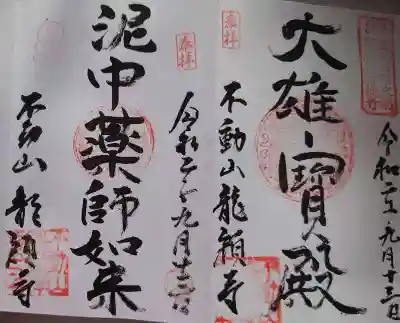 奉拝
大雄寶殿
令和二年九月十三日
不動山龍顔寺
奉拝
泥中薬師如来
令和二年九月十三日
不動山龍顔寺